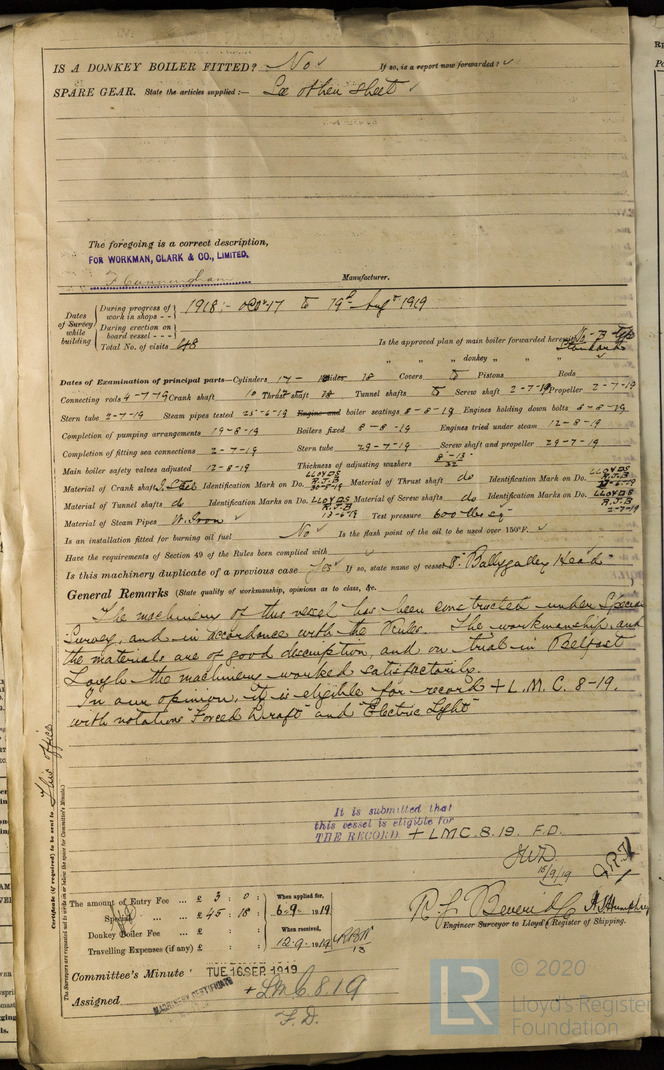 IS A DONKEY BOILER FITTED? No ✓ If so, is a report now forwarded? ✓
SPARE GEAR. State the articles supplied :— See other sheet ✓
The foregoing is a correct description,
FOR WORKMAN, CLARK & CO., LIMITED.
F Cunningham Manufacturer.
Dates of Survey while building
During progress of work in shops - - 1918:- Octr 17 to 19th Augst 1919
During erection on board vessel - - -
Total No. of visits 48
Is the approved plan of main boiler forwarded herewith
" " " donkey " " "
Dates of Examination of principal parts—Cylinders 17- Slides 18 Covers Pistons Rods
Connecting rods 4-7-19 Crank shaft Thrust shaft 18 Tunnel shafts Screw shaft 2-7-19 Propeller 2-7-19
Stern tube 2-7-19 Steam pipes tested 25-6-19 Engine and boiler seatings 8-8-19 Engines holding down bolts 8-8-19
Completion of pumping arrangements 19-8-19 Boilers fixed 8-8-19 Engines tried under steam 12-8-19
Completion of fitting sea connections 2-7-19 Stern tube 29-7-19 Screw shaft and propeller 29-7-19
Main boiler safety valves adjusted 12-8-19 Thickness of adjusting washers
Material of Crank shaft I. Steel Identification Mark on Do. LLOYDS R.J.B Material of Thrust shaft do Identification Mark on Do. LLOYDS R.J.B
Material of Tunnel shafts do Identification Marks on Do. LLOYDS R.J.B Material of Screw shafts do Identification Marks on Do. LLOYDS R.J.B 2-7-19
Material of Steam Pipes W. Iron ✓ Test pressure 600 lbs sq"
Is an installation fitted for burning oil fuel No ✓ Is the flash point of the oil to be used over 150°F. ✓
Have the requirements of Section 49 of the Rules been complied with
Is this machinery duplicate of a previous case Yes If so, state name of vessel S. "Ballygalley Head"
General Remarks (State quality of workmanship, opinions as to class, &c.
The machinery of this vessel has been constructed under Special
Survey, and in accordance with the Rules. The workmanship and
the materials are of good description, and on trial in Belfast
Lough the machinery worked satisfactorily.
In our opinion, it is eligible for record + L.M.C. 8-19.
with notations "Forced Draft" and "Electric Light"
Certificate (if required) to be sent to This office
The Surveyors are requested not to write on or below the space for Committee's Minute.)
It is submitted that
this vessel is eligible for
THE RECORD. + LMC 8.19. F.D.
JWD.
15/9/19
The amount of Entry Fee ... £ 3 : 0 :
Special ... ... £ 45 : 18 :
Donkey Boiler Fee ... £ : :
Travelling Expenses (if any) £ : :
When applied for,
6-9-1919
When received,
12-9-1919
R. J. Beveridge A. J. Humphrey
Engineer Surveyor to Lloyd's Register of Shipping.
Committee's Minute TUE 16 SEP 1919
Assigned + LMC 8.19
F.D.
MACHINERY CERTIFICATE
LR
© 2020
Lloyd's Register
Foundation